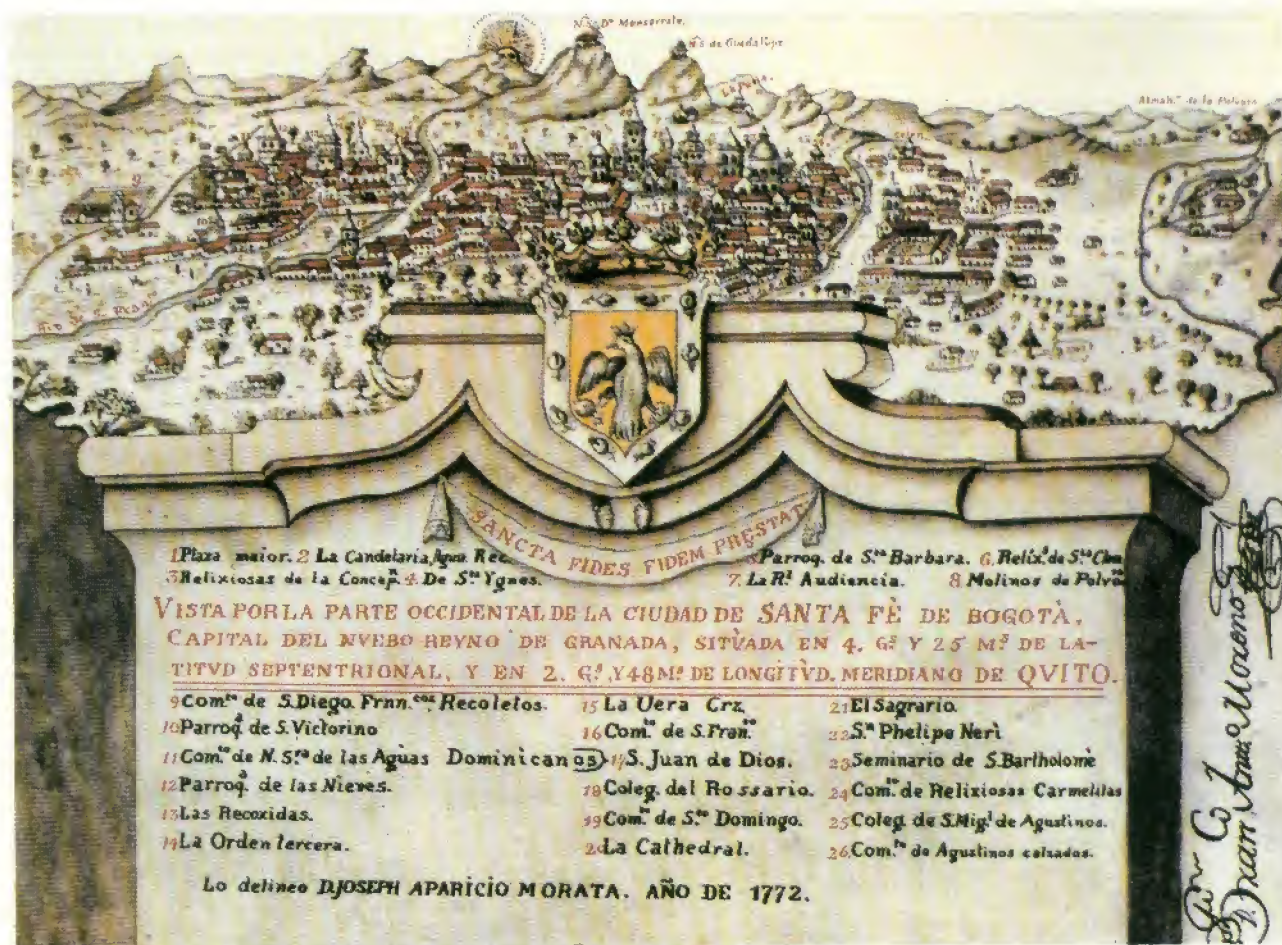 N.S. Dª Monserrate.
N.S. de Guadalupe
Almahn. de la Polvora
Rio de S. Fran
Belen
SANCTA FIDES FIDEM PRESTAT
1 Plaza maior. 2 La Candelaria, Agus. Rec
5 Parroq. de Sta. Barbara. 6. Relix.s de Sta. Clara
3 Relixiosas de la Concepn. 4. De Sta. Ygnes.
7. La Rl. Audiencia. 8 Molinos de Polvora
VISTA POR LA PARTE OCCIDENTAL DE LA CIUDAD DE SANTA FÈ DE BOGOTÀ,
CAPITAL DEL NVEBO REYNO DE GRANADA, SITÙADA EN 4. Gs. Y 25 Ms. DE LA-
TITVD SEPTENTRIONAL, Y EN 2. Gs. Y 48 Ms. DE LONGITÙD. MERIDIANO DE QVITO.
9 Comto. de S. Diego. Frnn.cos Recoletos.
10 Parroqa. de S. Victorino
11 Comto. de N. Sra. de las Agùas Dominicanos
12 Parroqa. de las Nieves.
13 Las Recoxidas.
14 La Orden tercera.
15 La Uera Crz
16 Comto. de S. Franco.
17 S. Juan de Dios.
18 Coleg. del Rossario.
19 Comto. de Sto. Domingo.
20 La Cathedral.
21 El Sagrario.
22 Sn. Phelipe Neri
23 Seminario de S. Bartholomè
24 Comto. de Relixiosas Carmelitas
25 Coleg. de S. Migl. de Agustinos.
26 Comto. de Agustinos calzados.
Lo delineo D. JOSEPH APARICIO MORATA. AÑO DE 1772.
Moreno